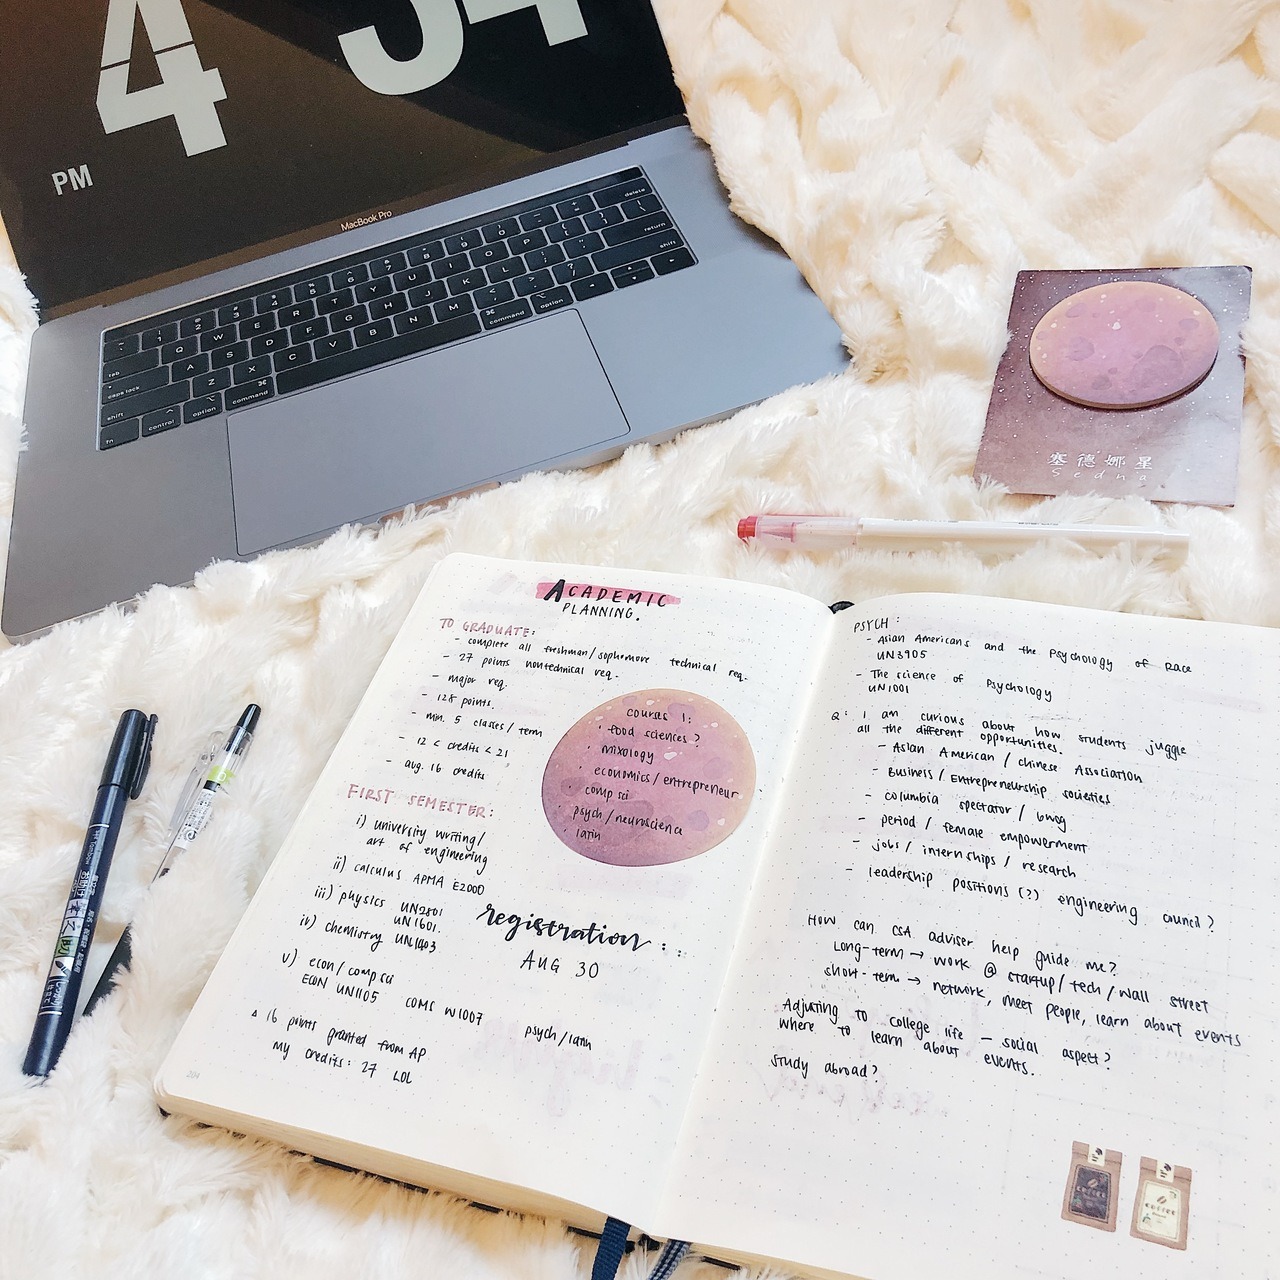 4 54
PM
MacBook Pro
delete
tab
Q W E R T Y U I O P
return
caps lock
A S D F G H J K L
shift
Z X C V B N M
shift
fn control option command
command option
塞德娜星
Sedna
ACADEMIC
PLANNING.
TO GRADUATE:
- complete all freshman/sophomore technical req.
- 27 points nontechnical req.
- major req.
- 128 points.
- min. 5 classes/term
- 12 < credits < 21
- aug. 16 credits
courses 1:
· food sciences?
· mixology
· economics/entrepreneur
· comp sci
· psych/neuroscience
· latin
FIRST SEMESTER:
i) university writing/
art of engineering
ii) calculus APMA E2000
iii) physics UN2801
UN1601.
iv) chemistry UN1403
v) econ/comp sci
ECON UN1105 COMS W1007 psych/latin
registration::
AUG 30
16 points granted from AP
my credits: 27 LOL
204
PSYCH:
- Asian Americans and the Psychology of Race
UN3905
- The science of Psychology
UN1001
Q: I am curious about how students juggle
all the different opportunities.
- Asian American / Chinese Association
- Business / Entrepreneurship societies
- columbia spectator / bwog
- period / female empowerment
- jobs / internships / research
- leadership positions (?) engineering council?
How can CSA adviser help guide me?
Long-term → work @ startup/tech/wall street
short-term → network, meet people, learn about events
Adjusting to college life — social aspect?
where to learn about events.
study abroad?
COFFEE
COFFEE